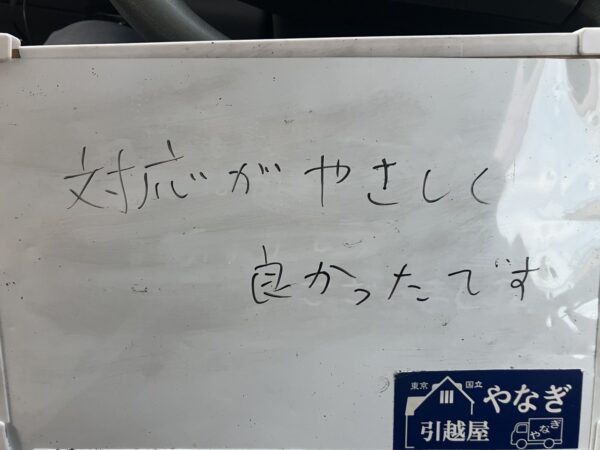 対応がやさしく
良かったです
東京 国立 やなぎ
引越屋 やなぎ